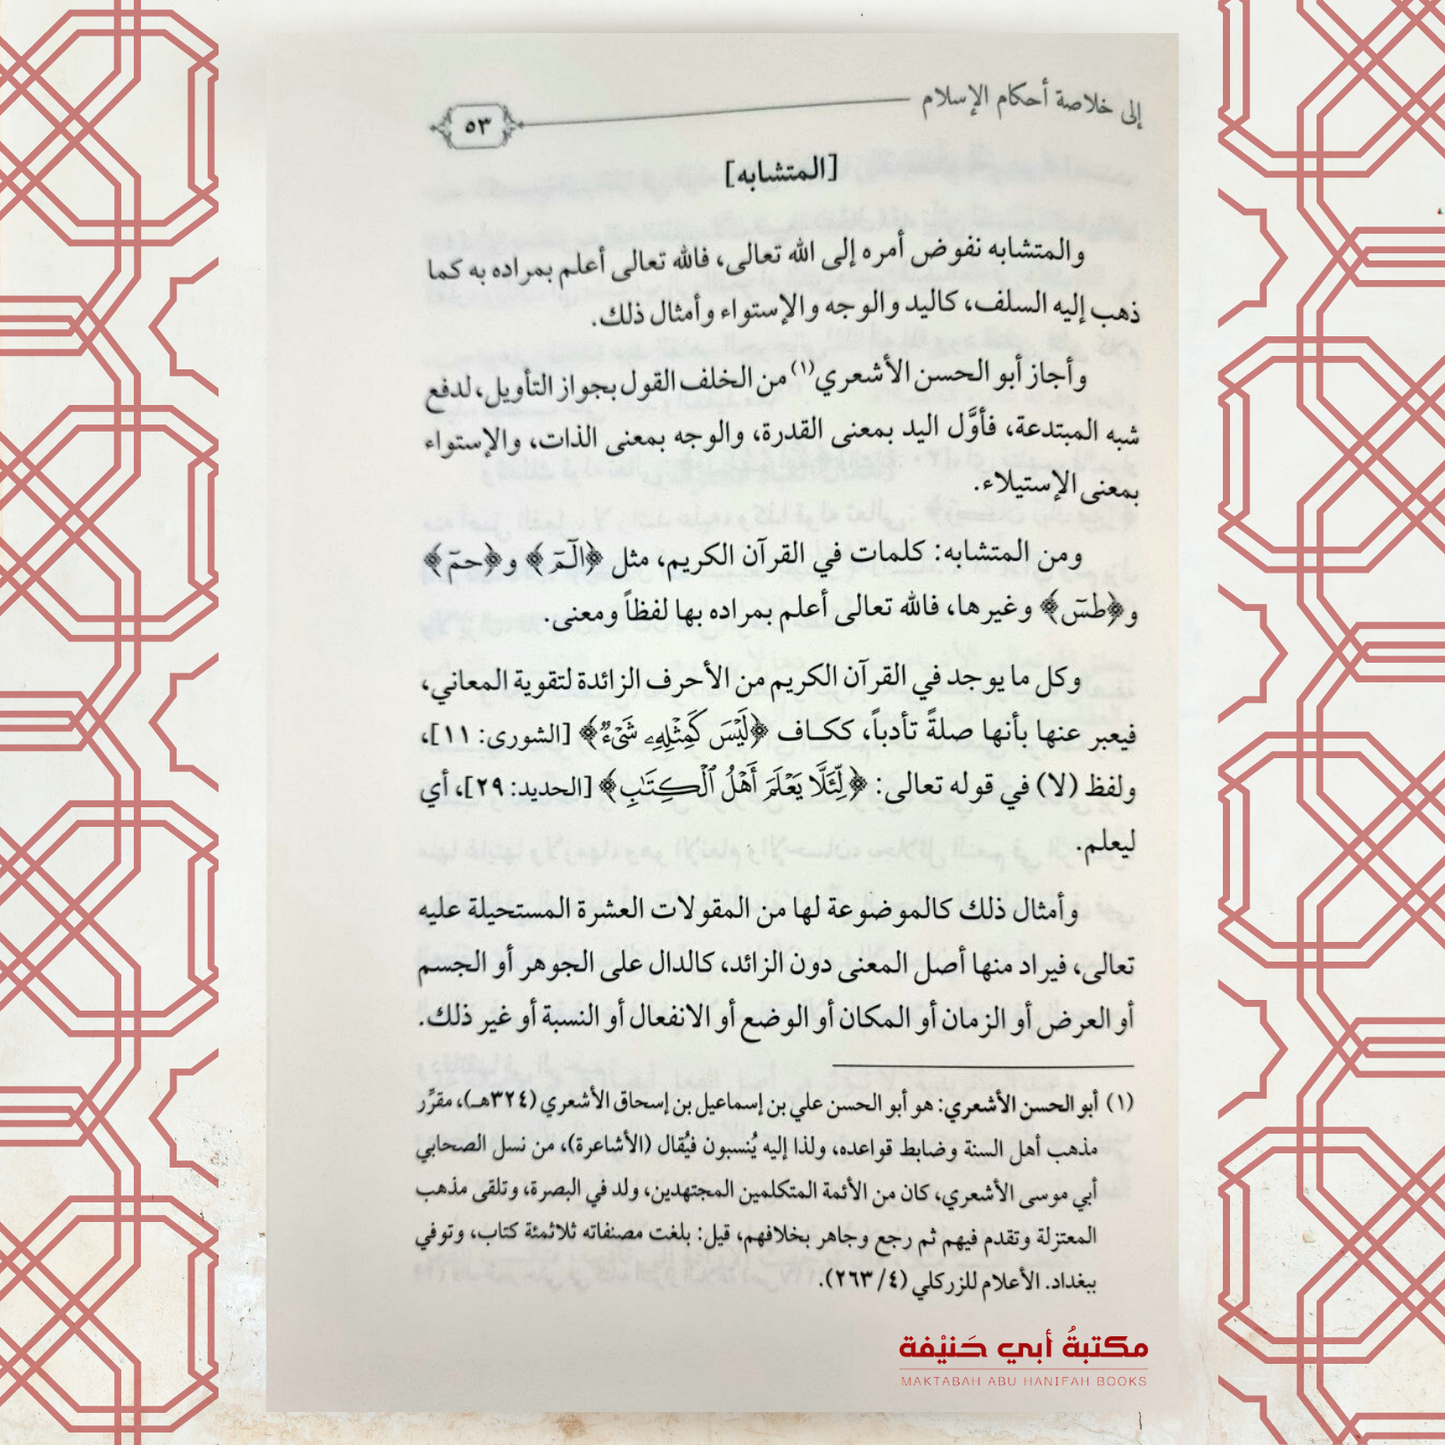 إلى خلاصة أحكام الإسلام
٥٣
[المتشابه]
والمتشابه نفوض أمره إلى الله تعالى، فالله تعالى أعلم بمراده به كما
ذهب إليه السلف، كاليد والوجه والإستواء وأمثال ذلك.
وأجاز أبو الحسن الأشعري(١) من الخلف القول بجواز التأويل، لدفع
شبه المبتدعة، فأوَّل اليد بمعنى القدرة، والوجه بمعنى الذات، والإستواء
بمعنى الإستيلاء.
ومن المتشابه: كلمات في القرآن الكريم، مثل ﴿الٓمٓ﴾ و﴿حمٓ﴾
و﴿طسٓ﴾ وغيرها، فالله تعالى أعلم بمراده بها لفظاً ومعنى.
وكل ما يوجد في القرآن الكريم من الأحرف الزائدة لتقوية المعاني،
فيعبر عنها بأنها صلةً تأدباً، ككاف ﴿لَيْسَ كَمِثْلِهِۦ شَىْءٌ﴾ [الشورى: ١١]،
ولفظ (لا) في قوله تعالى: ﴿لِّئَلَّا يَعْلَمَ أَهْلُ ٱلْكِتَٰبِ﴾ [الحديد: ٢٩]، أي
ليعلم.
وأمثال ذلك كالموضوعة لها من المقولات العشرة المستحيلة عليه
تعالى، فيراد منها أصل المعنى دون الزائد، كالدال على الجوهر أو الجسم
أو العرض أو الزمان أو المكان أو الوضع أو الانفعال أو النسبة أو غير ذلك.
(١) أبو الحسن الأشعري: هو أبو الحسن علي بن إسماعيل بن إسحاق الأشعري (٣٢٤هـ)، مقرِّر
مذهب أهل السنة وضابط قواعده، ولذا إليه يُنسبون فيُقال (الأشاعرة)، من نسل الصحابي
أبي موسى الأشعري، كان من الأئمة المتكلمين المجتهدين، ولد في البصرة، وتلقى مذهب
المعتزلة وتقدم فيهم ثم رجع وجاهر بخلافهم، قيل: بلغت مصنفاته ثلاثمئة كتاب، وتوفي
ببغداد. الأعلام للزركلي (٤/ ٢٦٣).
مكتبةُ أبي حَنيْفة
MAKTABAH ABU HANIFAH BOOKS